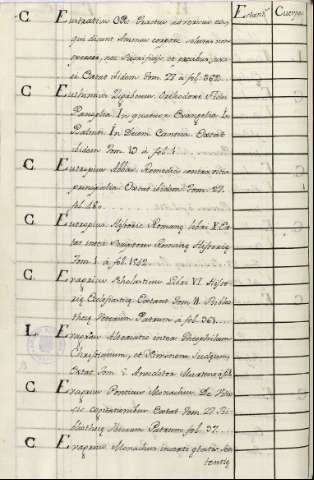 Estant.^e Cuerpo
C. Eustratius Obl. Tractus adversus eos
qui dicunt Animas corpore solutas non
operari, nec Sacrificiis et precibus juva
ri Extat ibidem Tom. 27 a fol. 362.
C Eusebius Orthodoxe Fidei
Panoplia In quatuor Evangelia In
Psalmos In Decem Canones Extat
ibidem Tom 19 a fol. 1
C Eutropius Abbas Remediis contra vitia
principalia Extat ibidem Tom 27.
fol. 480.
C Eutropius Historie Romanę libri X Ex
tat inter Scriptores Romanę Historię
Tom 1 a fol. 1152
C Evagrius Scholasticus Libri VI Histo
rię Eclesiasticę Extant Tom 11 Biblio
thecę Veterum Patrum a fol. 361.
L Evagrius Altercatio inter Theophilum
Christianum, et Simonem Judęum,
Extat Tom 5 Anecdot. Martene a fol.
C Evagrius Ponticus Monachus De Octo
viciis capitalibus Extat Tom 27 Bi-
bliothecę Veterum Patrum fol. 97.
C Evagrius Monachus Sen
tentię